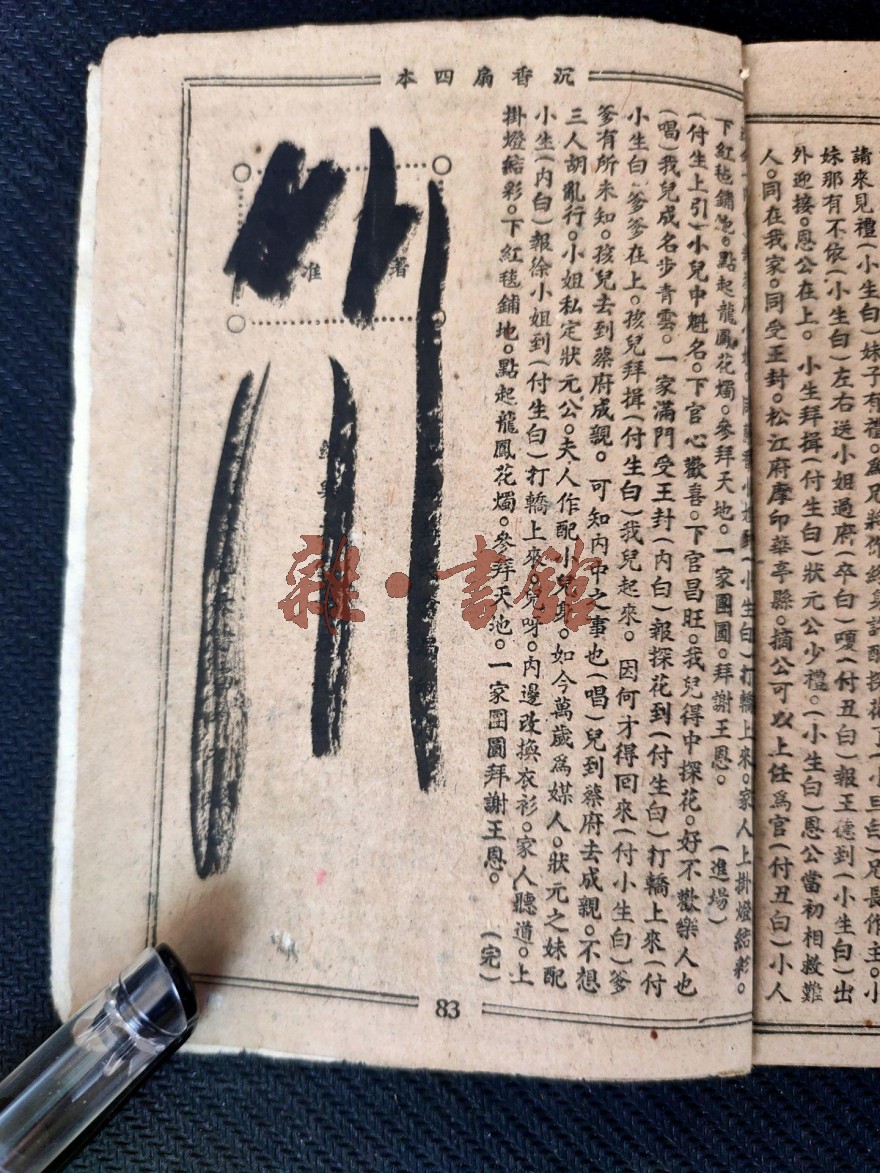 沉香扇四本
請來見禮(小生白)妹子有禮。爲兄將作終身許配探花了(小旦白)兄長作主。小
妹那有不依(小生白)左右送小姐過府(卒白)嗄(付丑白)報王德到(小生白)出
外迎接。恩公在上。小生拜揖(付生白)狀元公少禮。(小生白)恩公當初相救難
人。同在我家。同受王封。松江府摩印華亭縣。摘公可以上任爲官(付丑白)小人
(小生白)打轎上來。家人上掛燈結彩。
下紅毡鋪地。點起龍鳳花燭。參拜天地。一家團圓。拜謝王恩。(進場)
(付生上引)小兒中魁名。下官心歡喜。下官昌旺。我兒得中探花。好不歡樂人也
(唱)我兒成名步青雲。一家滿門受王封(內白)報探花到(付生白)打轎上來(付
小生白)爹爹在上。孩兒拜揖(付生白)我兒起來。因何才得回來(付小生白)爹
爹有所未知。孩兒去到蔡府成親。可知內中之事也(唱)兒到蔡府去成親。不想
三人胡亂行。小姐私定狀元公。夫人作配小兒身。如今萬歲爲媒人。狀元之妹配
小生(內白)報徐小姐到(付生白)打轎上來。兒呀。內邊改換衣衫。家人聽道。上
掛燈結彩。下紅毯鋪地。點起龍鳳花燭。參拜天地。一家團圓拜謝王恩。(完)
著
准
83
雜·書館